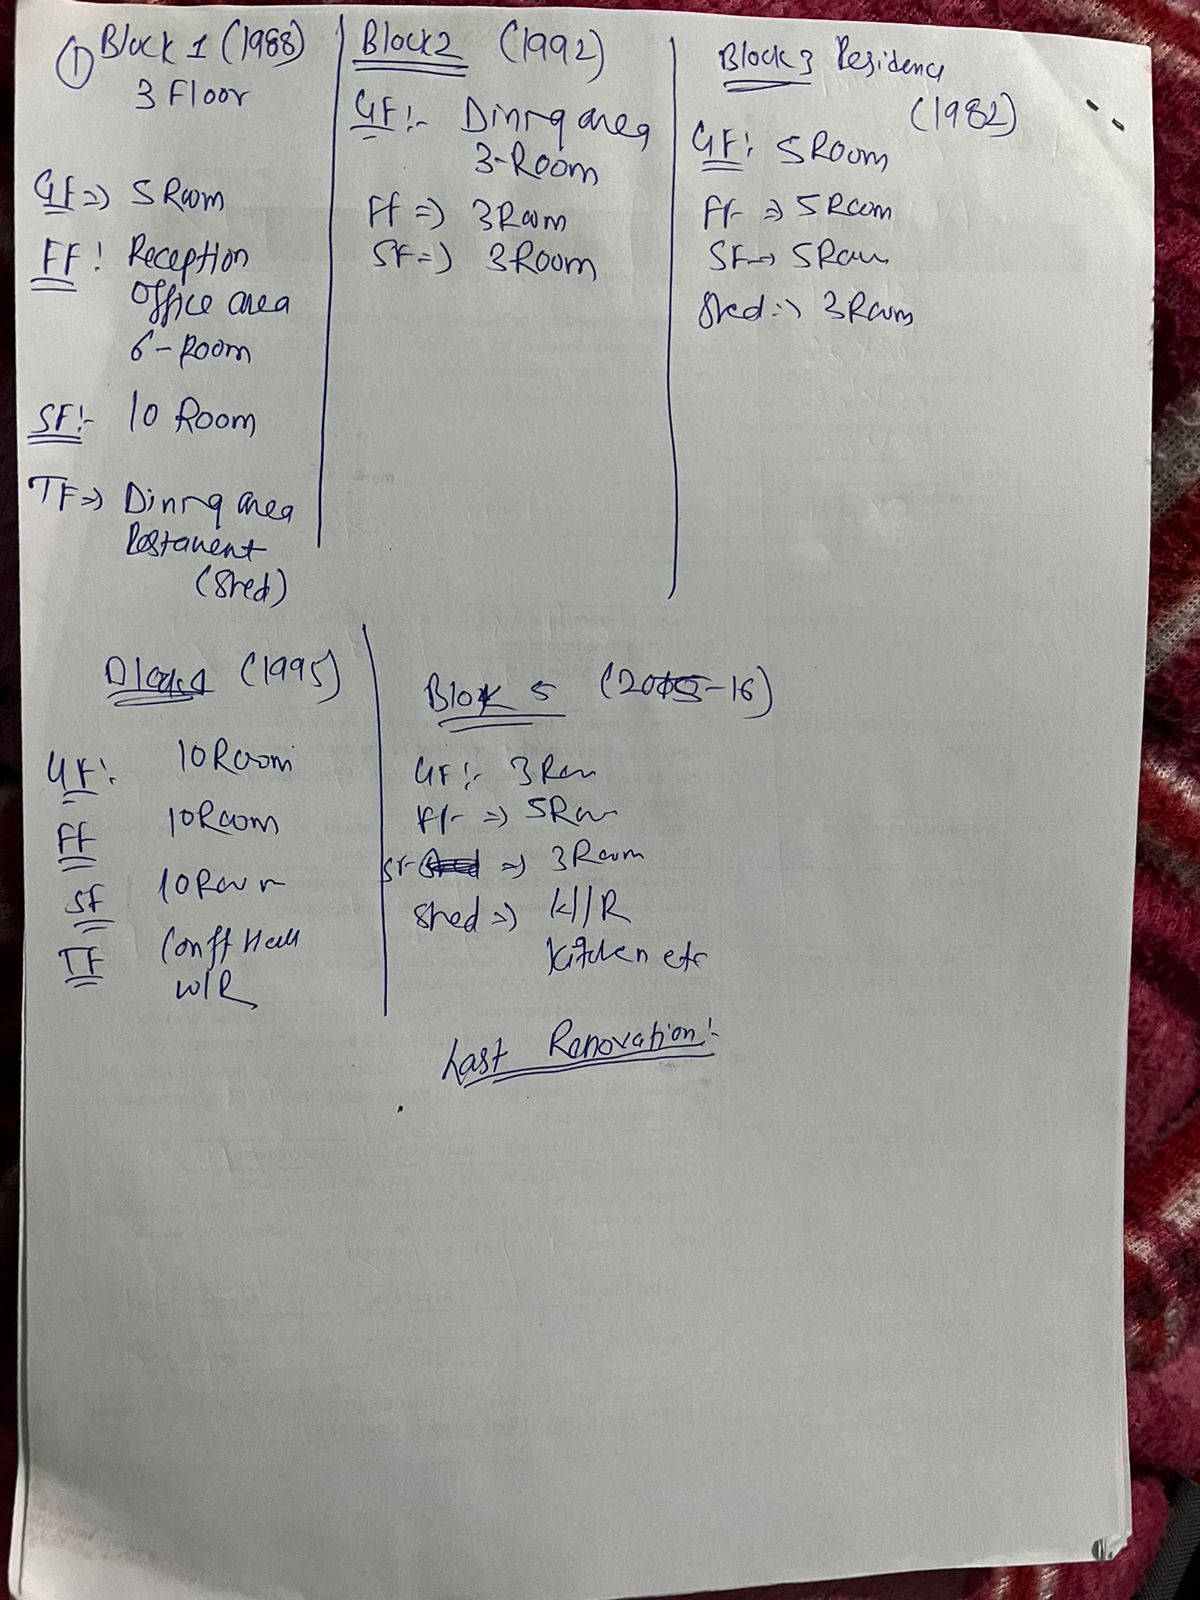 ① Block 1 (1988)
3 Floor
GF => 5 Room
FF : Reception
Office area
6-Room
SF :- 10 Room
TF => Dining area
Restaurent
(Shed)
Block 2 (1992)
GF :- Dining area
3-Room
FF => 3 Room
SF => 3 Room
Block 3 Residency
(1982)
GF : 5 Room
FF => 5 Room
SF => 5 Room
Shed => 3 Room
Block 4 (1995)
GF : 10 Room
FF 10 Room
SF 10 Room
TF Conff Hall
W/R
Block 5 (2015-16)
GF :- 3 Room
FF => 5 Room
SF => 3 Room
Shed =>
Kitchen etc
Last Renovation :-